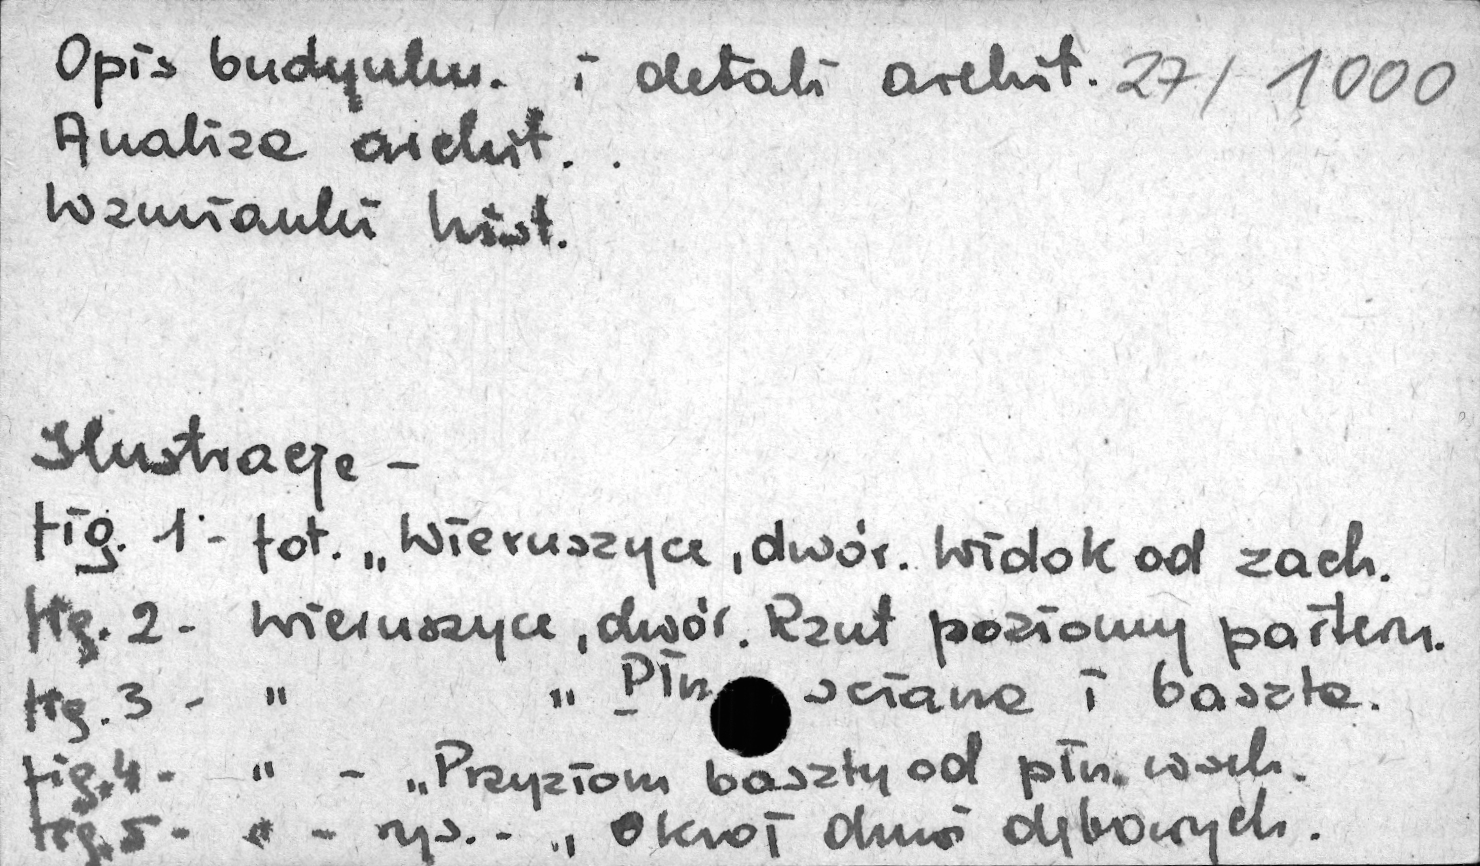 Opis budynku. i detali archit. 27/1000
Analiza archit. .
Wzmianki hist.
Ilustracje –
fig. 1 - fot. „Wieruszyce, dwór. Widok od zach.
fig. 2 - Wieruszyce, dwór. Rzut poziomy parteru.
fig. 3 - " " Płn. ściana i baszta.
fig. 4 - " - „Przyziom baszty od płn. wsch.
fig. 5 - " - rys. - „Okroi drzwi dębowych.